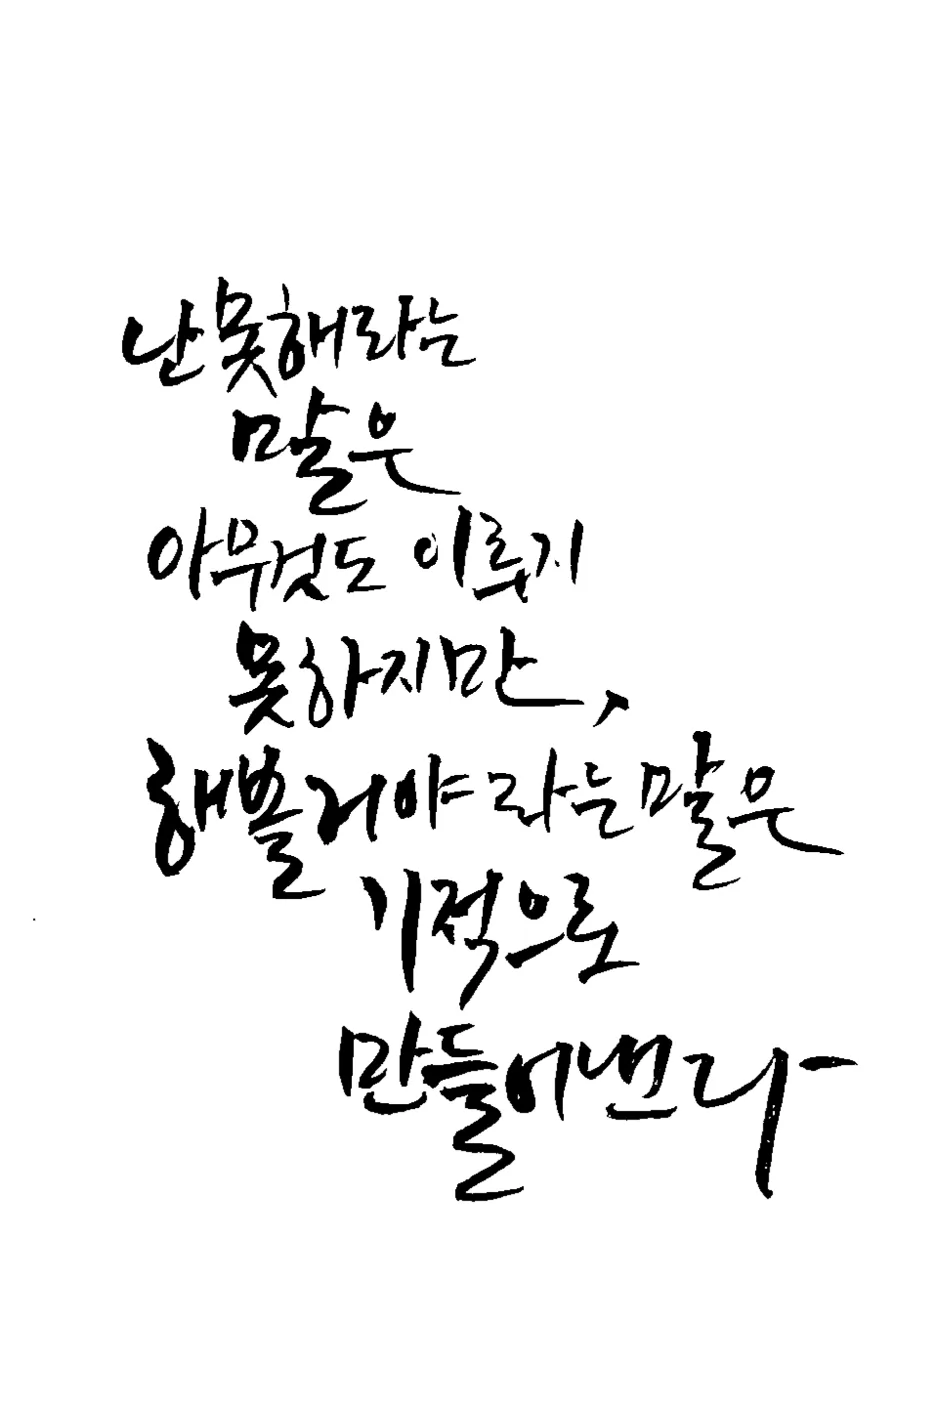 난 못해라는
말은
아무것도 이루지
못하지만,
해볼거야 라는 말은
기적으로
만들어낸다